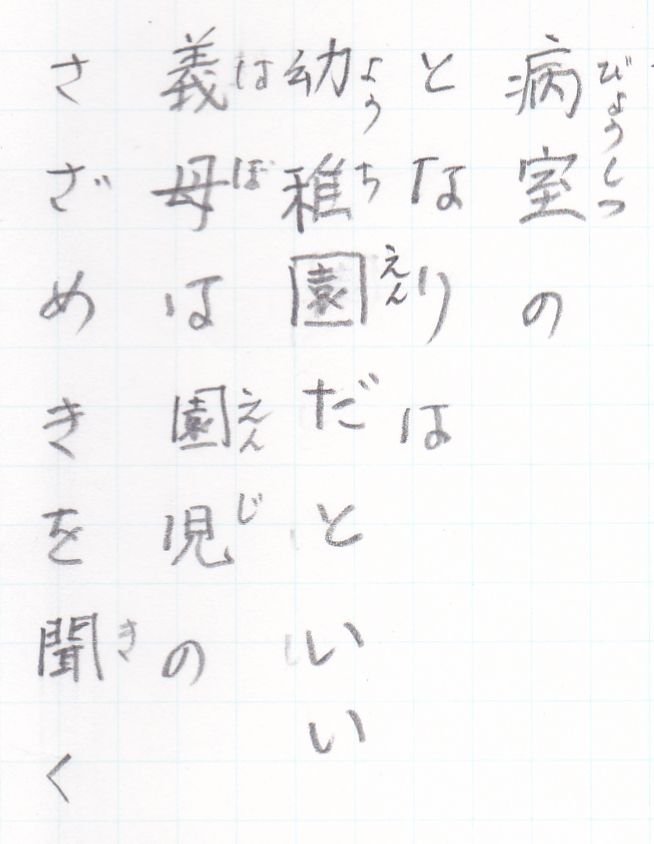 病室の
となりは
幼稚園だといい
義母は園児の
さざめきを聞く
びょうしつ
えん
よう
ち
は
ぼ
えん
じ
き